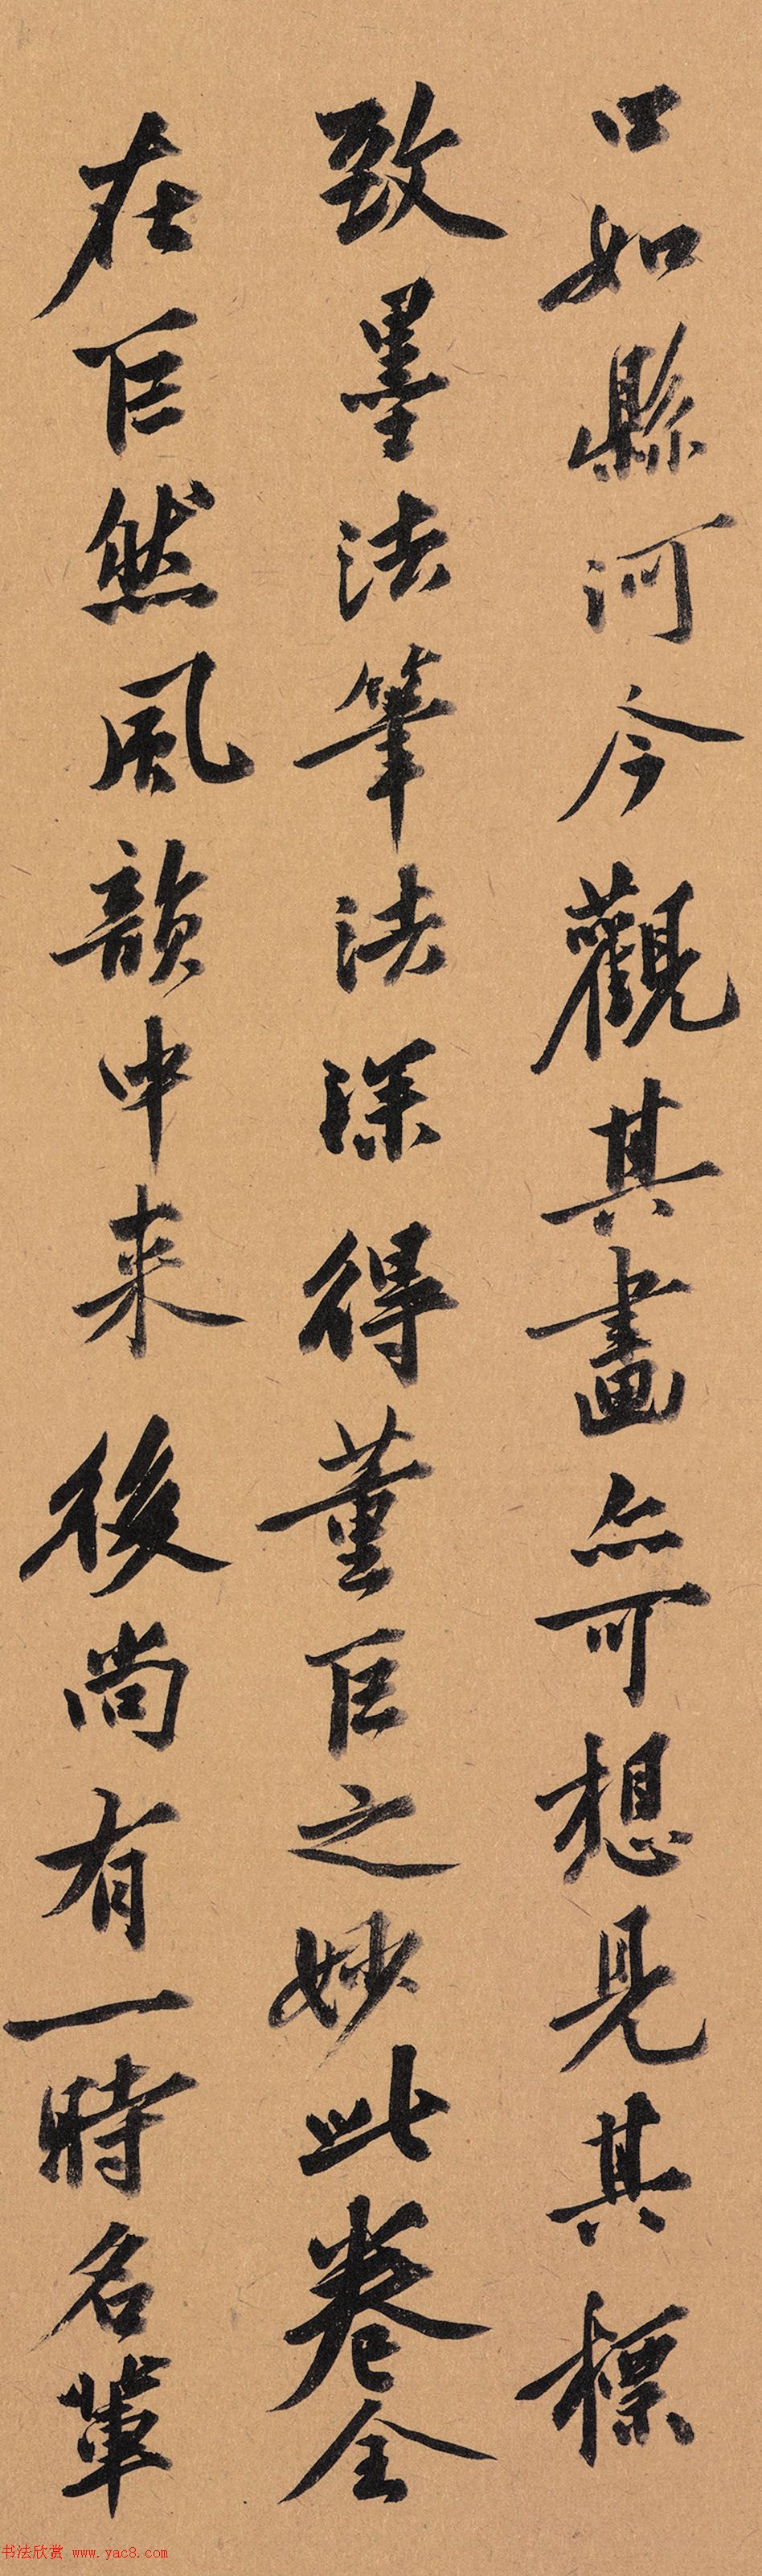 口如縣河今觀其畫亦可想見其標
致墨法筆法深得董巨之妙此卷全
在巨然風韻中来後尚有一時名輩
书法欣赏 www.yac8.com